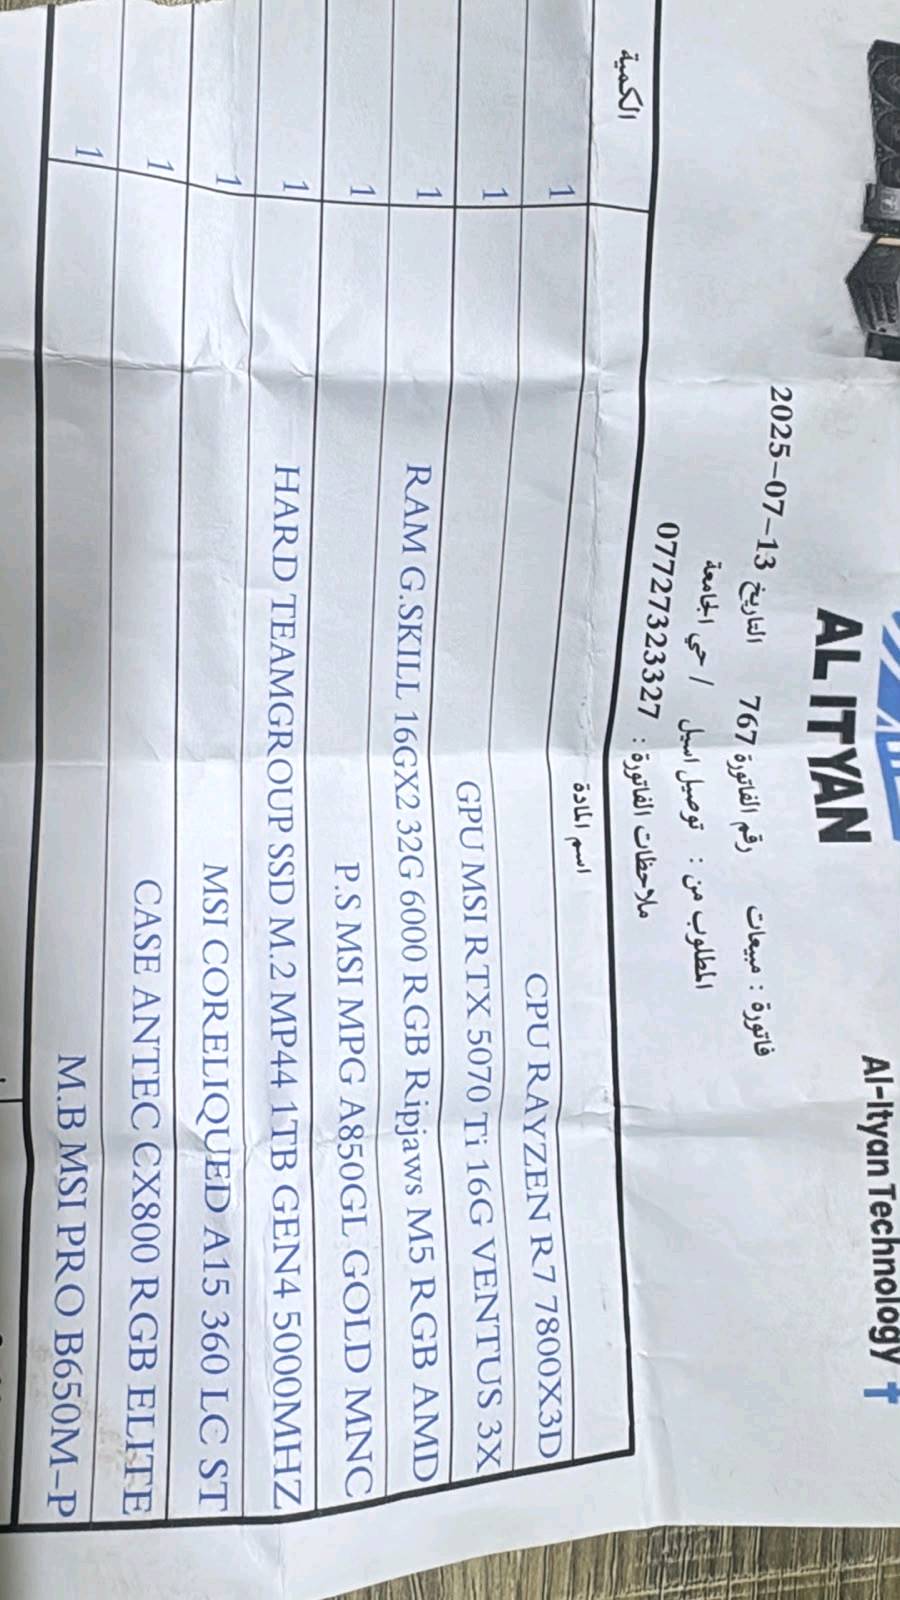 AL ITYAN
Al-Ityan Technology
فاتورة : مبيعات رقم الفاتورة 767 التاريخ 2025-07-13
المطلوب من : توصيل اسيل / حي الجامعة
ملاحظات الفاتورة : 07727323327
اسم المادة الكمية
CPU RAYZEN R7 7800X3D 1
GPU MSI RTX 5070 Ti 16G VENTUS 3X 1
RAM G.SKILL 16GX2 32G 6000 RGB Ripjaws M5 RGB AMD 1
P.S MSI MPG A850GL GOLD MNC 1
HARD TEAMGROUP SSD M.2 MP44 1TB GEN4 5000MHZ 1
MSI CORELIQUED A15 360 LC ST 1
CASE ANTEC CX800 RGB ELITE 1
M.B MSI PRO B650M-P 1